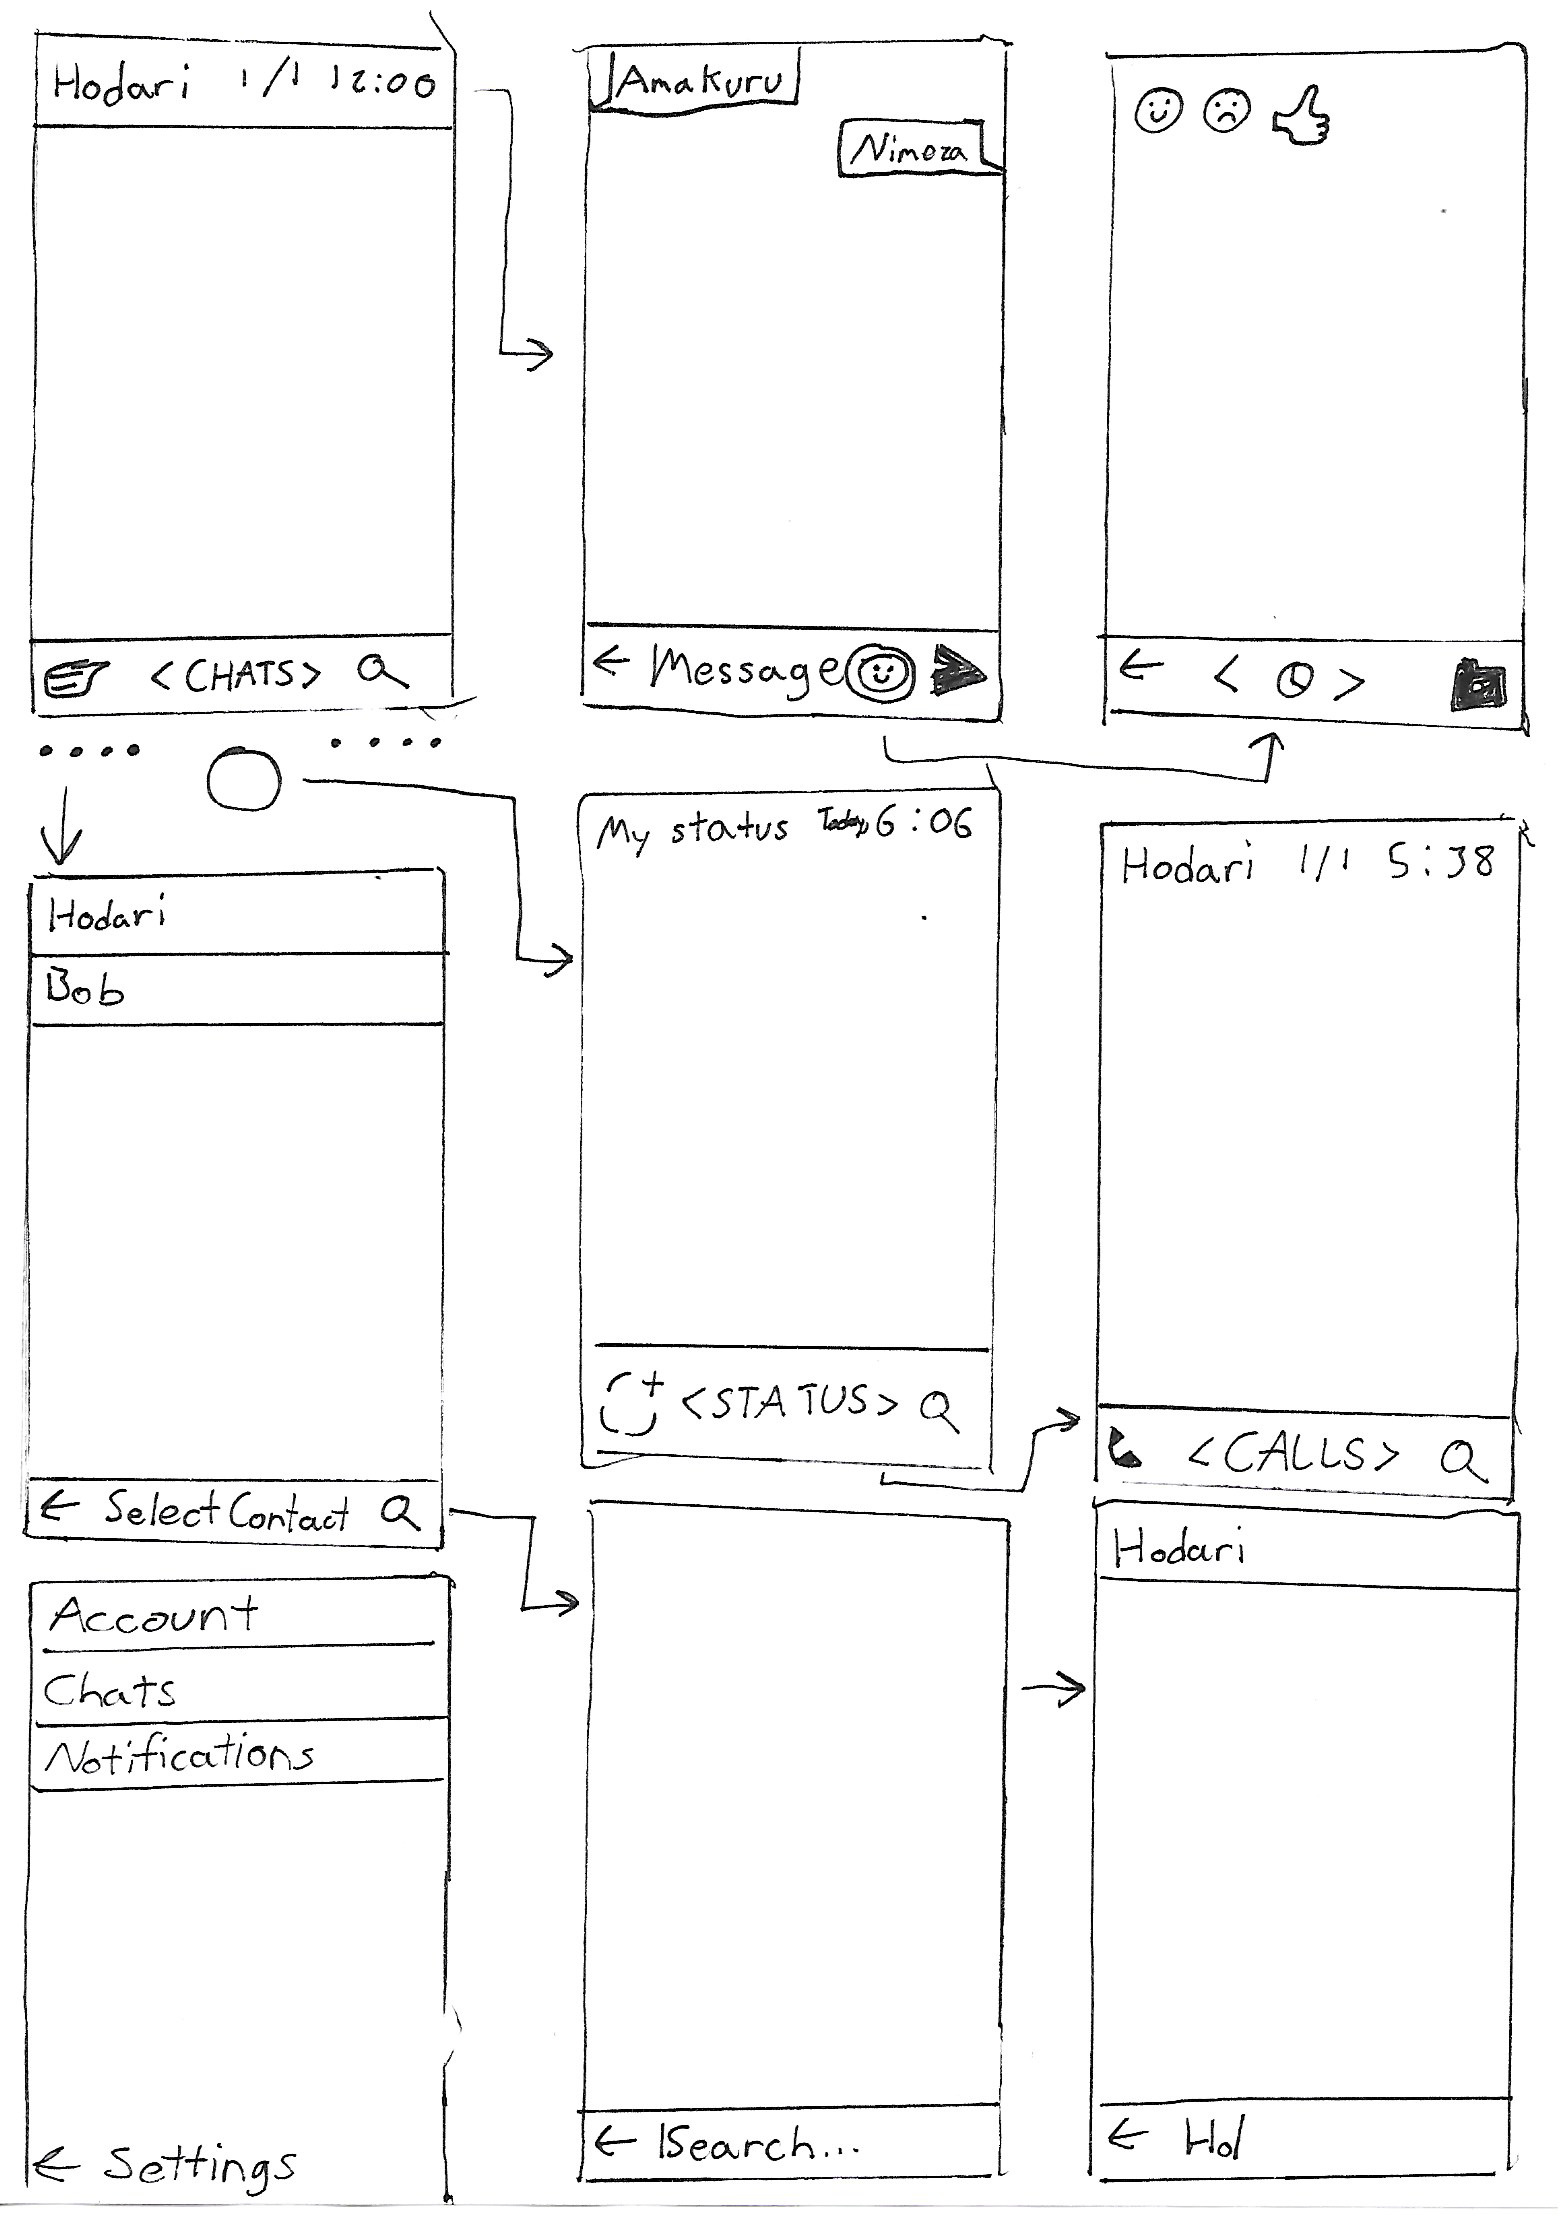 Hodari 1/1 12:00
<CHATS>
Amakuru
Nimeza
← Message
← < >
Hodari
Bob
← Select Contact
My status Today, 6:06
<STATUS>
Hodari 1/1 5:38
<CALLS>
Account
Chats
Notifications
← Settings
← |Search...
Hodari
← Ho|